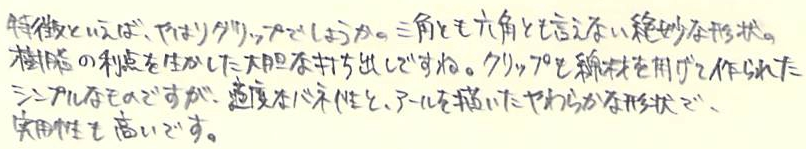 特徴といえば、やはりグリップでしょうか。三角とも六角とも言えない絶妙な形状。
樹脂の利点を生かした大胆な打ち出しですね。クリップも線材を曲げて作られた
シンプルなものですが、適度なバネ性と、アールを描いたやわらかな形状で、
実用性も高いです。